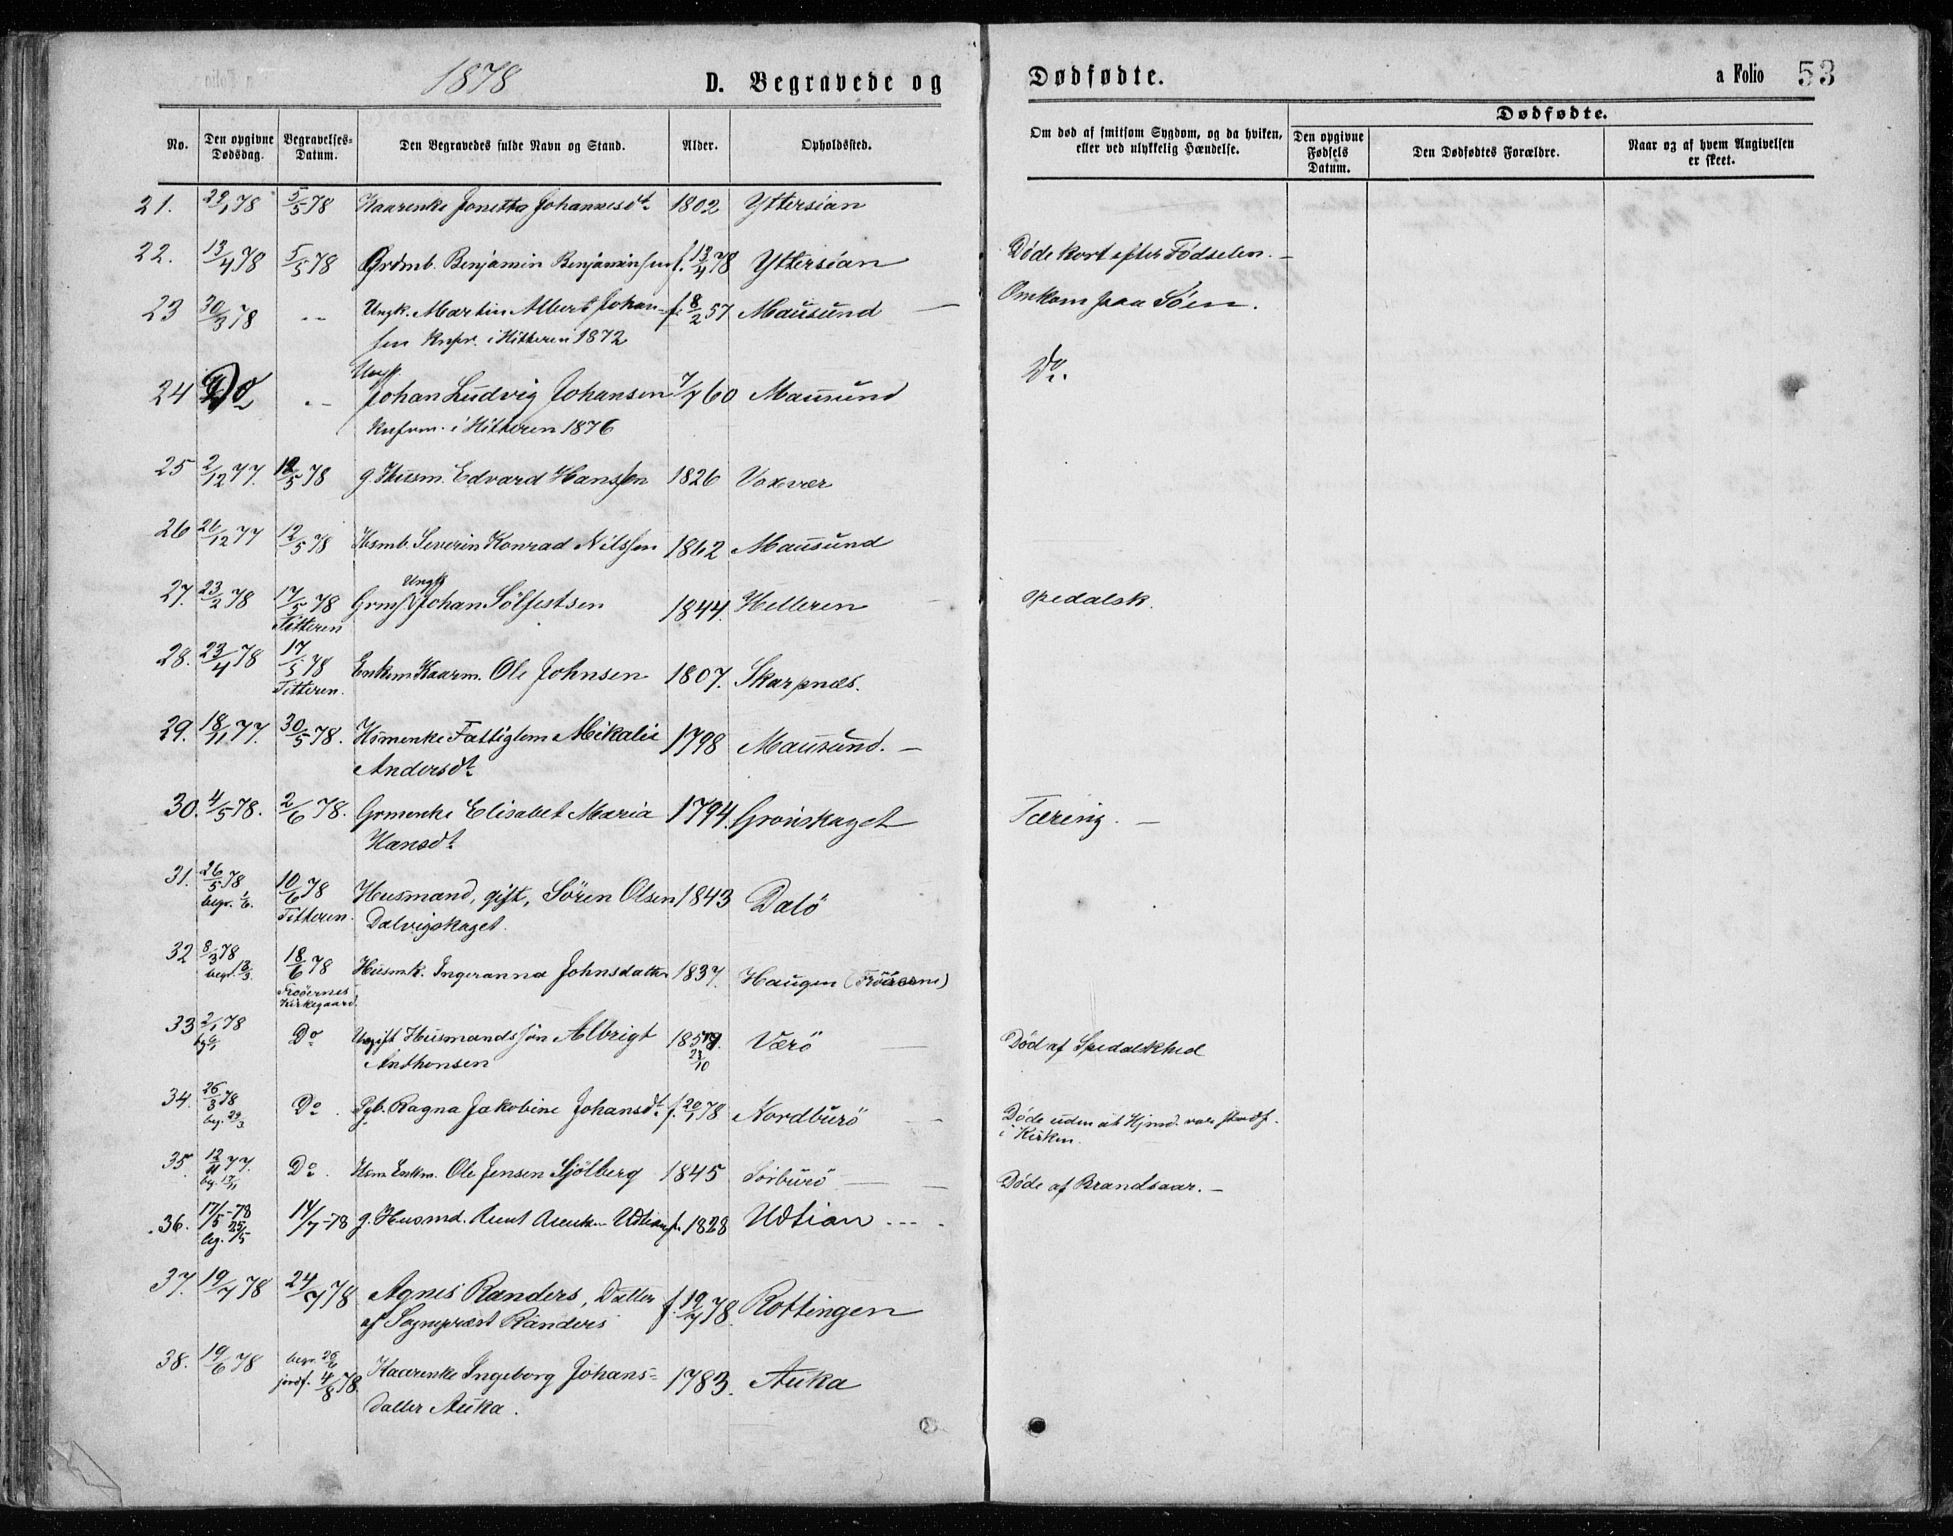 1878
D. Begravede og Dødfødte.
a Folio 53
No.
Den opgivne Dødsdag.
Begravelses-Datum.
Den Begravedes fulde Navn og Stand.
Alder.
Opholdssted.
Om død af smitsom Sygdom, og da hvilken, eller ved ulykkelig Hændelse.
Dødfødte.
Den opgivne Fødsels Datum.
Den Dødfødtes Forældre.
Naar og af hvem Angivelsen er skeet.
21. 29/1 78 5/5 78 Kaarenke Jonetta Johannesdt. 1802 Yttersian
22. 13/4 78 5/5 78 Grdmb. Benjamin Benjaminsen f. 13/4 78 Yttersian Døde kort efter Fødselen. –
23 30/3 78 -- Ungk. Martin Albert Johan- f. 8/2 57 Mausund – Omkom paa Søen.
sen Knfr. i Hitteren 1872
24 Do -- Ungk. Johan Ludvig Johansen 7/7 60 Mausund Do.
Knfrm. i Hitteren 1876
25 2/12 77. 12/5 78 g. Husm. Edvard Hanssen 1826 Voxvær
26 26/12 77 12/5 78 Hsmb. Severin Konrad Nilssen 1862 Mausund
27. 23/2 78 17/5 78 Ungk Johan Sölfestsen 1844. Helleren spedalsk.
Titteren
28. 23/4 78 17/5 78 Enkem. Kaarm. Ole Johnsen 1807. Skarpnæs.
Titteren.
29. 18/11 77. 30/5 78. Hsmenke Fattiglem Mikalie 1798 Mausund. –
Andersdt.
30. 4/5 78. 2/6 78. Grmenke Elisabet Maria 1794. Grönskaget Tæring. –
Hansdt.
31. 26/5 78 10/6 78 Husmand, gift, Sören Olsen 1843 Dalö
begr. 1/6. Titteren. Dalvigskaget.
32 8/3 78 18/6 78 Husmk. Ingeranna Johnsdatter 1837. Haugen (Frööerne)
begr. 13/3 Froöernes Kirkegaard.
33 2/1 78 Do Ugift Husmandssön Albrigt 1859. Værö – Död af Spedalskhed
Anthonsen 23/10
34. 26/3 78 Do. Pgb. Ragna Jakobine Johansdt. f. 20/1 78 Nordburö – Döde uden at Hjmd. var stadf.
beg. 29/3 i Kirken.
35. 12/11 77. Do. Hsm. Enkm. Ole Jensen Sjölberg 1845 Sörburö – Döde af Brandsaar. –
bg. 17/11
36. 17/5 -78 14/7 -78 g. Husmd. Arnt Arentsen Udtian f. 1828 Udtian ...
beg. 25/5
37. 19/7 78 24/7 78 Agnes Randers, Datter f. 19/7 78. Rottingen
af Sognepræst Randers
38. 19/6 78 begr. 26/6 Kaarenke Ingeborg Johans- 1783. Auka
jordf. 4/8 78. datter Auka.